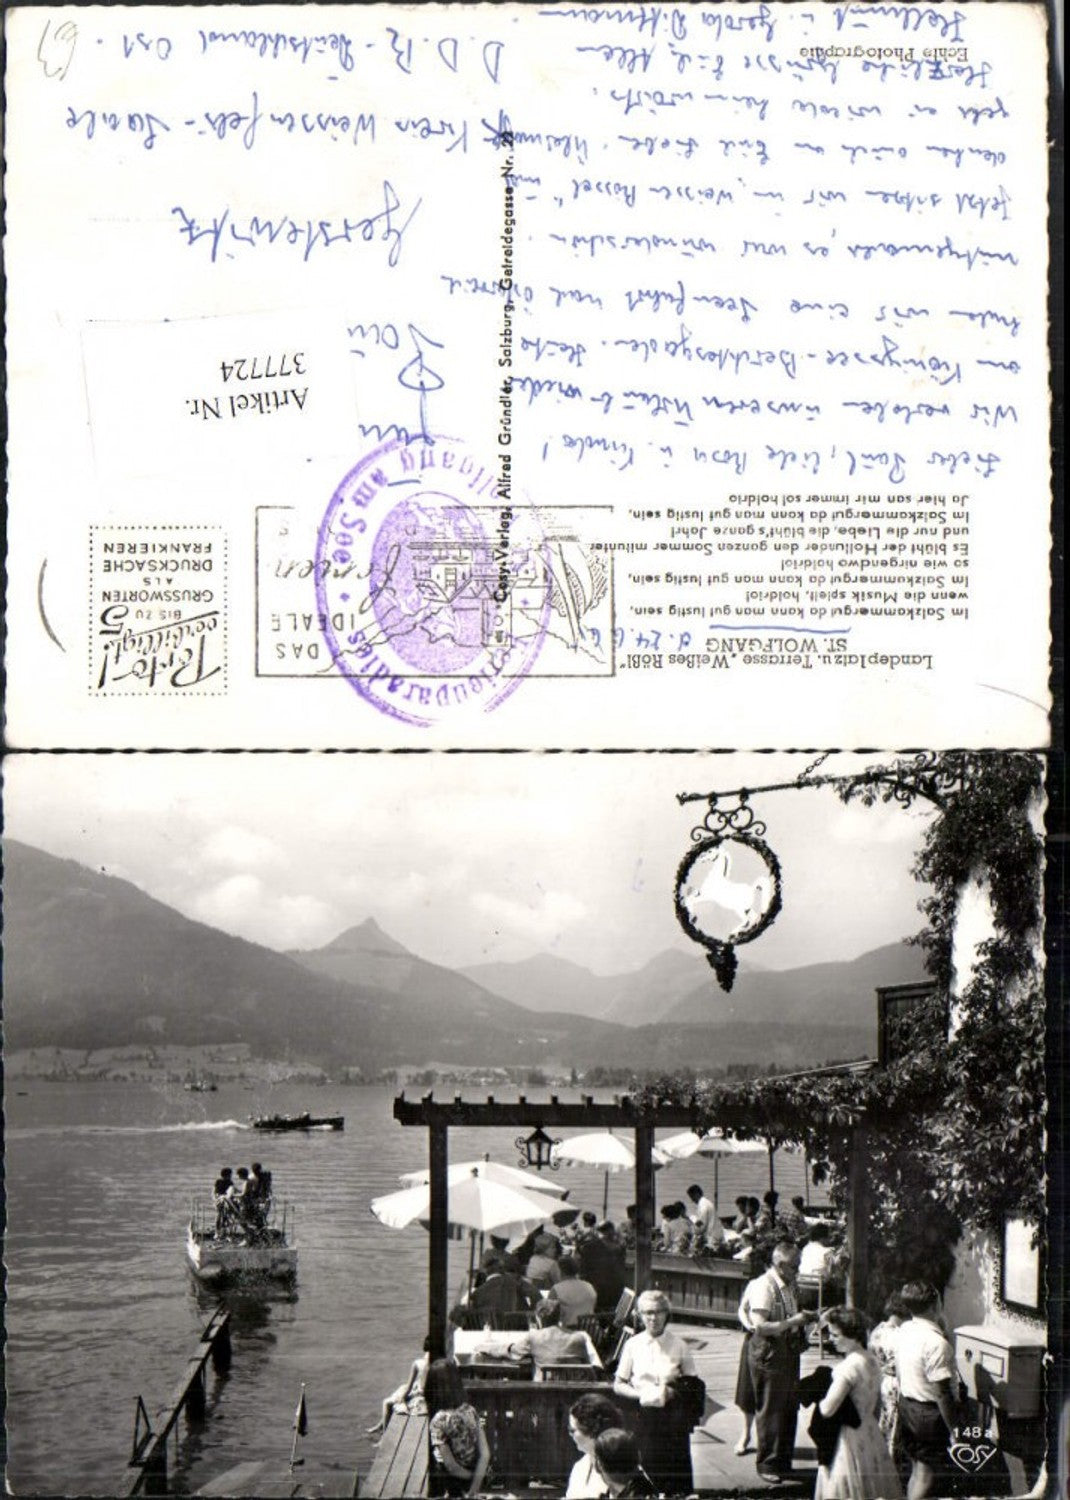 Landeplatz u. Terrasse „Weißes Rößl"
ST. WOLFGANG
Im Salzkammergut da kann man gut lustig sein,
wenn die Musik spielt, holdrio!
Im Salzkammergut da kann man gut lustig sein,
so wie nirgendwo holdrio!
Es blüht der Hollunder den ganzen Sommer mitunter
und nur die Liebe, die blüht's ganze Jahr!
Im Salzkammergut da kann man gut lustig sein,
Ja hier san mir immer so! holdrio
Lieber Paul, liebe Rosy u. Kinder!
Wir verleben unseren Urlaub wieder
am Königssee-Berchtesgaden. Heute
haben wir eine Seenfahrt nach Österreich
mitgemacht, es war wunderschön.
Jetzt sitzen wir im „weissen Rössel" und
denken auch an Euch Lieben.
geht es wieder heimwärts.
Herzliche Grüsse Euch Allen
Hellmut u. Gerda Dittmann
Echte Photographie
Cosy-Verlag, Alfred Gründler, Salzburg, Getreidegasse Nr. 22
DAS
IDEALE
Ferienparadies
Wolfgang am See
Porto-
verbilligt!
BIS ZU
5
GRUSSWORTEN
ALS
DRUCKSACHE
FRANKIEREN
Artikel Nr.
377724
Gerstewitz
Kreis Weissenfels-Saale
D.D.R.-Deutschland Ost.
148a
COSY